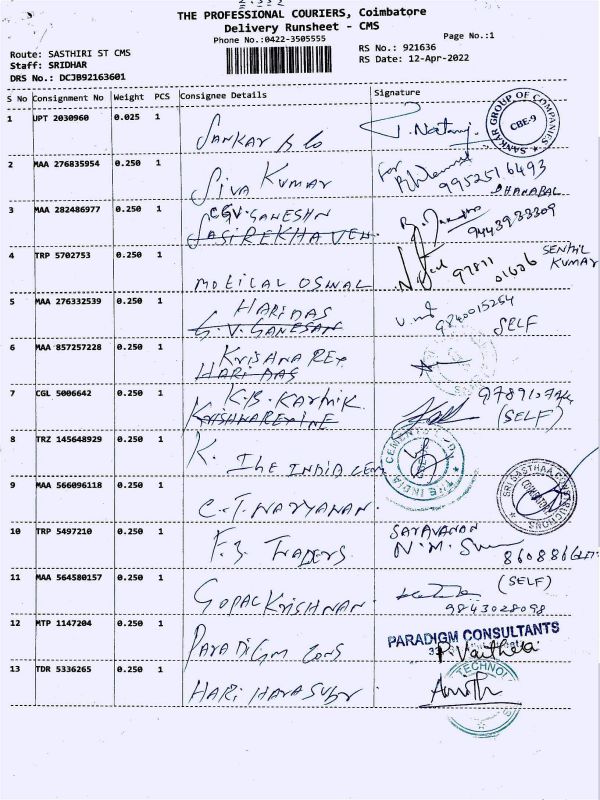 THE PROFESSIONAL COURIERS, Coimbatore
Delivery Runsheet - CMS
Phone No.:0422-3505555
Page No.:1
Route: SASTHIRI ST CMS
RS No.: 921636
Staff: SRIDHAR
RS Date: 12-Apr-2022
DRS No.: DCJB92163601
S No Consignment No Weight PCS Consignee Details Signature
1 UPT 2030960 0.025 1 Sankar & Co
SANKAR GROUP OF COMPANIES
CBE-9
2 MAA 276835954 0.250 1 Siva Kumar For 9952516493
3 MAA 282486977 0.250 1 C.G.V. GANESHN DHANABAL
SASIREKHAVEN 9443933309
4 TRP 5702753 0.250 1 MOTILAL OSWAL 97871 01606 SENTHIL KUMAR
5 MAA 276332539 0.250 1 HARIDAS 9840015254
G.V. GANESAN SELF
6 MAA 857257228 0.250 1 KRISHNA REY
HARI DAS
7 CGL 5006642 0.250 1 K.B. KARTHIK
(SELF)
8 TRZ 145648929 0.250 1 K. The INDIA CEM
9 MAA 566096118 0.250 1 C.T. NARYANAN.
SRI SASTHAA CONSTRUCTIONS
10 TRP 5497210 0.250 1 F.3. TRADERS. SARAVANAN
11 MAA 564580157 0.250 1 GOPAL KRISHNAN (SELF)
9843028098
12 MTP 1147204 0.250 1 PARADIGM CONS PARADIGM CONSULTANTS
13 TDR 5336265 0.250 1 HARI HARA SUBR